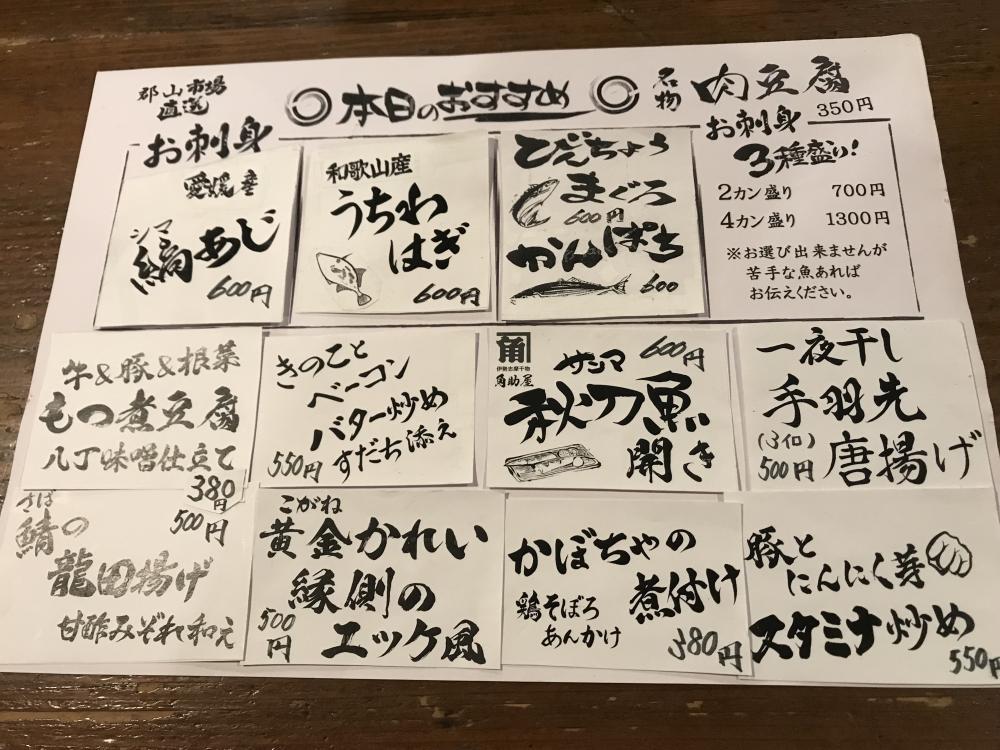 郡山市場
直送
本日のおすすめ
名物
肉豆腐
350円
お刺身
愛媛産
シマ
縞あじ
600円
和歌山産
うちわ
はぎ
600円
びんちょう
まぐろ
600円
かんぱち
600
お刺身
3種盛り!
2カン盛り 700円
4カン盛り 1300円
※お選び出来ませんが
苦手な魚あれば
お伝えください。
牛&豚&根菜
もつ煮豆腐
八丁味噌仕立て
380円
きのこと
ベーコン
バター炒め
すだち添え
550円
角
伊勢志摩干物
角助屋
サンマ
600円
秋刀魚
開き
一夜干し
手羽先
(3コ)
500円
唐揚げ
さば
鯖の
500円
龍田揚げ
甘酢みぞれ和え
こがね
黄金かれい
縁側の
500円
エッケ風
かぼちゃの
煮付け
鶏そぼろ
あんかけ
380円
豚と
にんにく芽
スタミナ炒め
550円